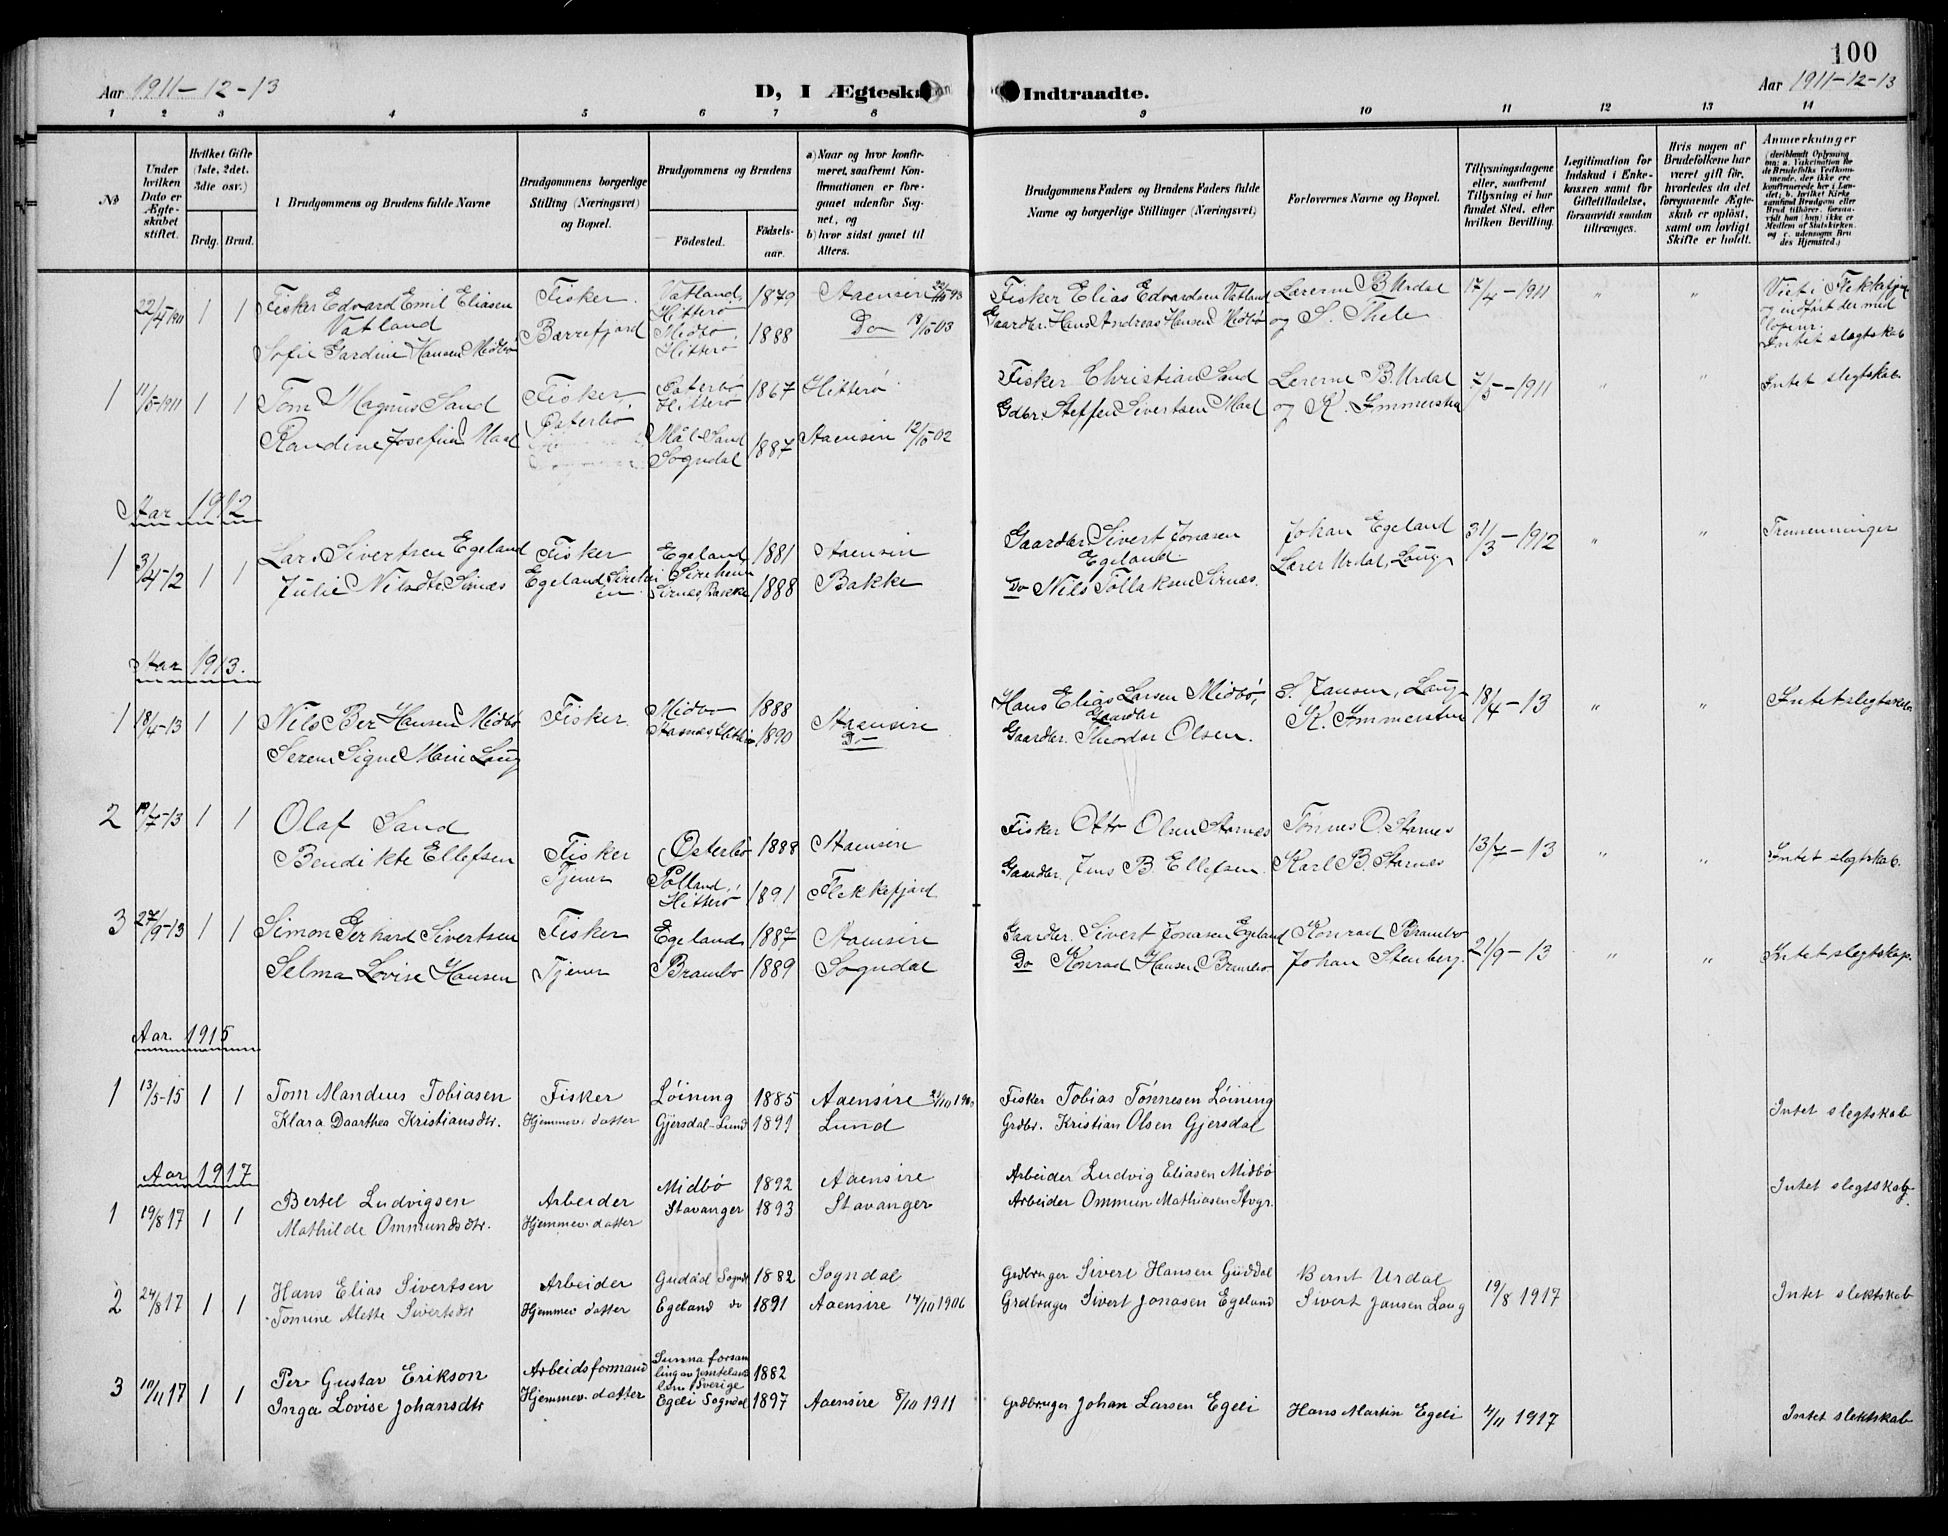 100
Aar 1911-12-13
D, I Ægteska
Indtraadte.
Aar 1911-12-13
1 2 3 4 5 6 7 8 9 10 11 12 13 14
No
Under hvilken Dato er Ægteskabet stiftet.
Hvilket Gifte (1ste, 2det, 3die osv.)
Brdg. Brud.
Brudgommens og Brudens fulde Navne
Brudgommens borgerlige Stilling (Næringsvei) og Bopæl.
Brudgommens og Brudens
Fødested.
Fødselsaar.
a) Naar og hvor konfirmeret, saafremt Konfirmationen er foregaaet udenfor Sognet, og
b) hvor sidst gaaet til Alters.
Brudgommens Faders og Brudens Faders fulde Navne og borgerlige Stillinger (Næringsvei)
Forlovernes Navne og Bopæl.
Tillysningsdagene eller, saafremt Tillysning ei har fundet Sted, efter hvilken Bevilling.
Legitimation for Indskud i Enkekassen samt for Giftetilladelse, forsaavidt saadan tiltrænges.
Hvis nogen af Brudefolkene har været gift før, hvorledes da det foregaaende Ægteskab er opløst, samt om lovligt Skifte er holdt.
Anmerkutnger
22/4 1911 1 1 Fisker Edvard Emil Eliasen Vatland Fisker Vatland, Hitterö 1879 Aaensire Fisker Elias Edvardsen Vatland Lærerne B Urdal 17/4-1911 " " Viet i Flekkefjord
Sofie Gardine Hansen Midbö Berrefjord Midbö Hitterö 1888 Do 18/10 03 Gaardbr. Hans Andreas Hansen Midbö og S. Thele Intet slegtskab
1 11/5-1911 1 1 Tom Magnus Sand Fisker, Osterbö Osterbö Hitterö 1867 Hitterö Fisker Christian Sand Lærerne B. Urdal 7/5-1911 " " Intet slegtskab
Randine Josefine Maal Mål-Sand Sogndal 1887 Aaensire 12/10-02 Gdbr. Steffen Sivertsen Maal og K. Immerstein
Aar 1912
1 3/4-12 1 1 Lars Sivertsen Egeland Fisker Egeland 1881 Aaensire Gaardbr. Sivert Jonasen Egeland Johan Egeland 31/3-1912 " " Tremenninger
Julie Nilsdtr. Sirnes Egeland, Sireheien Sirnes, Bakke 1888 Bakke Do Nils Tollaksen Sirnes. Lærer Urdal, Laug
Aar 1913.
1 18/4-13 1 1 Nils Ber Hansen Midbö Fisker. Midbö 1888 Aaensire Hans Elias Larsen Midbö, Gaardbr S. Jansen, Laug 18/4-13 " " Intet slegtskab
Seren Signe Marie Laug 1890 Do Gaardbr. Theodor Olsen. K. Immerstein
2 19/7-13 1 1 Olaf Sand Fisker Osterbö 1888 Aaensire Fisker Otto Olsen Starnes Tönnes O. Starnes 13/7-13 " " Intet slegtskab.
Bendikte Ellefsen Tjener Polland, Hitterö 1891 Flekkefjord Gaardbr. Jens B. Ellefsen Karl B. Starnes
3 27/9-13 1 1 Simon Gerhard Sivertsen Fisker Egeland 1887 Aaensire Gaardbr. Sivert Jonasen Egeland Konrad Brambö 21/9-13 " " Intet slegtskap.
Selma Lovise Hansen Tjener Brambö 1889 Sogndal Do Konrad Hansen Brambö Johan Stenberg.
Aar. 1915
1 13/5-15 1 1 Tom Mandius Tobiasen Fisker Löining 1885 Aaensire Fisker Tobias Tönnesen Löining Intet slegtskab
Klara Daarthea Kristiansdtr. Hjemmev. datter Gjersdal-Lund 1891 Lund Grdbr. Kristian Olsen Gjersdal
Aar 1917
1 19/8 17 1 1 Bertel Ludvigsen Arbeider Midbö 1892 Aaensire Arbeider Ludvig Eliasen Midbö Intet slegtskab
Mathilde Ommundsdtr. Hjemmev. datter Stavanger 1893 Stavanger Arbeider Ommun Mathiasen Stvgr.
2 24/8 17 1 1 Hans Elias Sivertsen Arbeider Guddal Sogndl 1882 Sogndal Grdbruger Sivert Hansen Guddal Bernt Urdal 19/8 1917 Intet slektskab
Tomine Alette Sivertsdtr Hjemmev datter Egeland do 1891 Aaensire 14/10 1906 Grdbruger Sivert Jonasen Egeland Sivert Jansen Laug
3 10/11 17 1 1 Per Gustav Erikson Arbeidsformand Sunna forsamling av Jemtelands len i Sverige 1882
Inga Lovise Johansdtr Hjemmev. datter Egeli Sogndal 1897 Aaensire 8/10 1911 Grdbruger Johan Larsen Egeli Hans Martin Egeli 4/11 1917 Intet slektskab